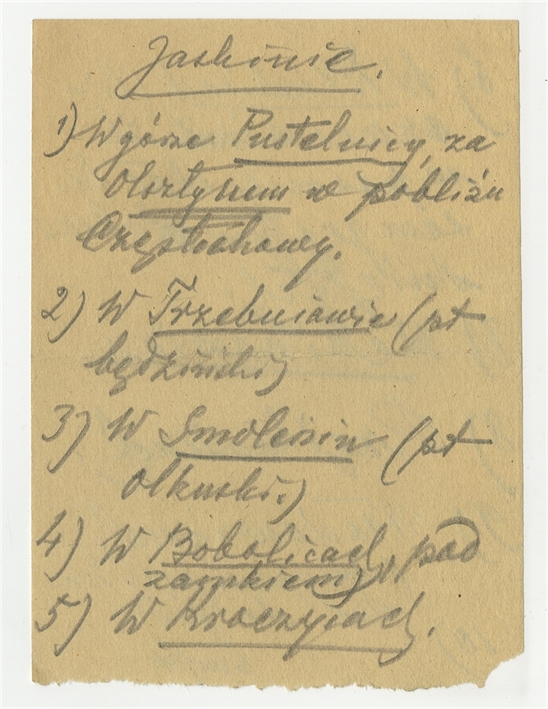 Jaskinie.
1) W górze Pustelnicy, za
Olsztynem w pobliżu
Częstochowy.
2) W Trzebniowie (pt
będziński)
3) W Smoleniu (pt
olkuski.)
4) W Bobolicach, pod
zamkiem)
5) W Kroczycach.